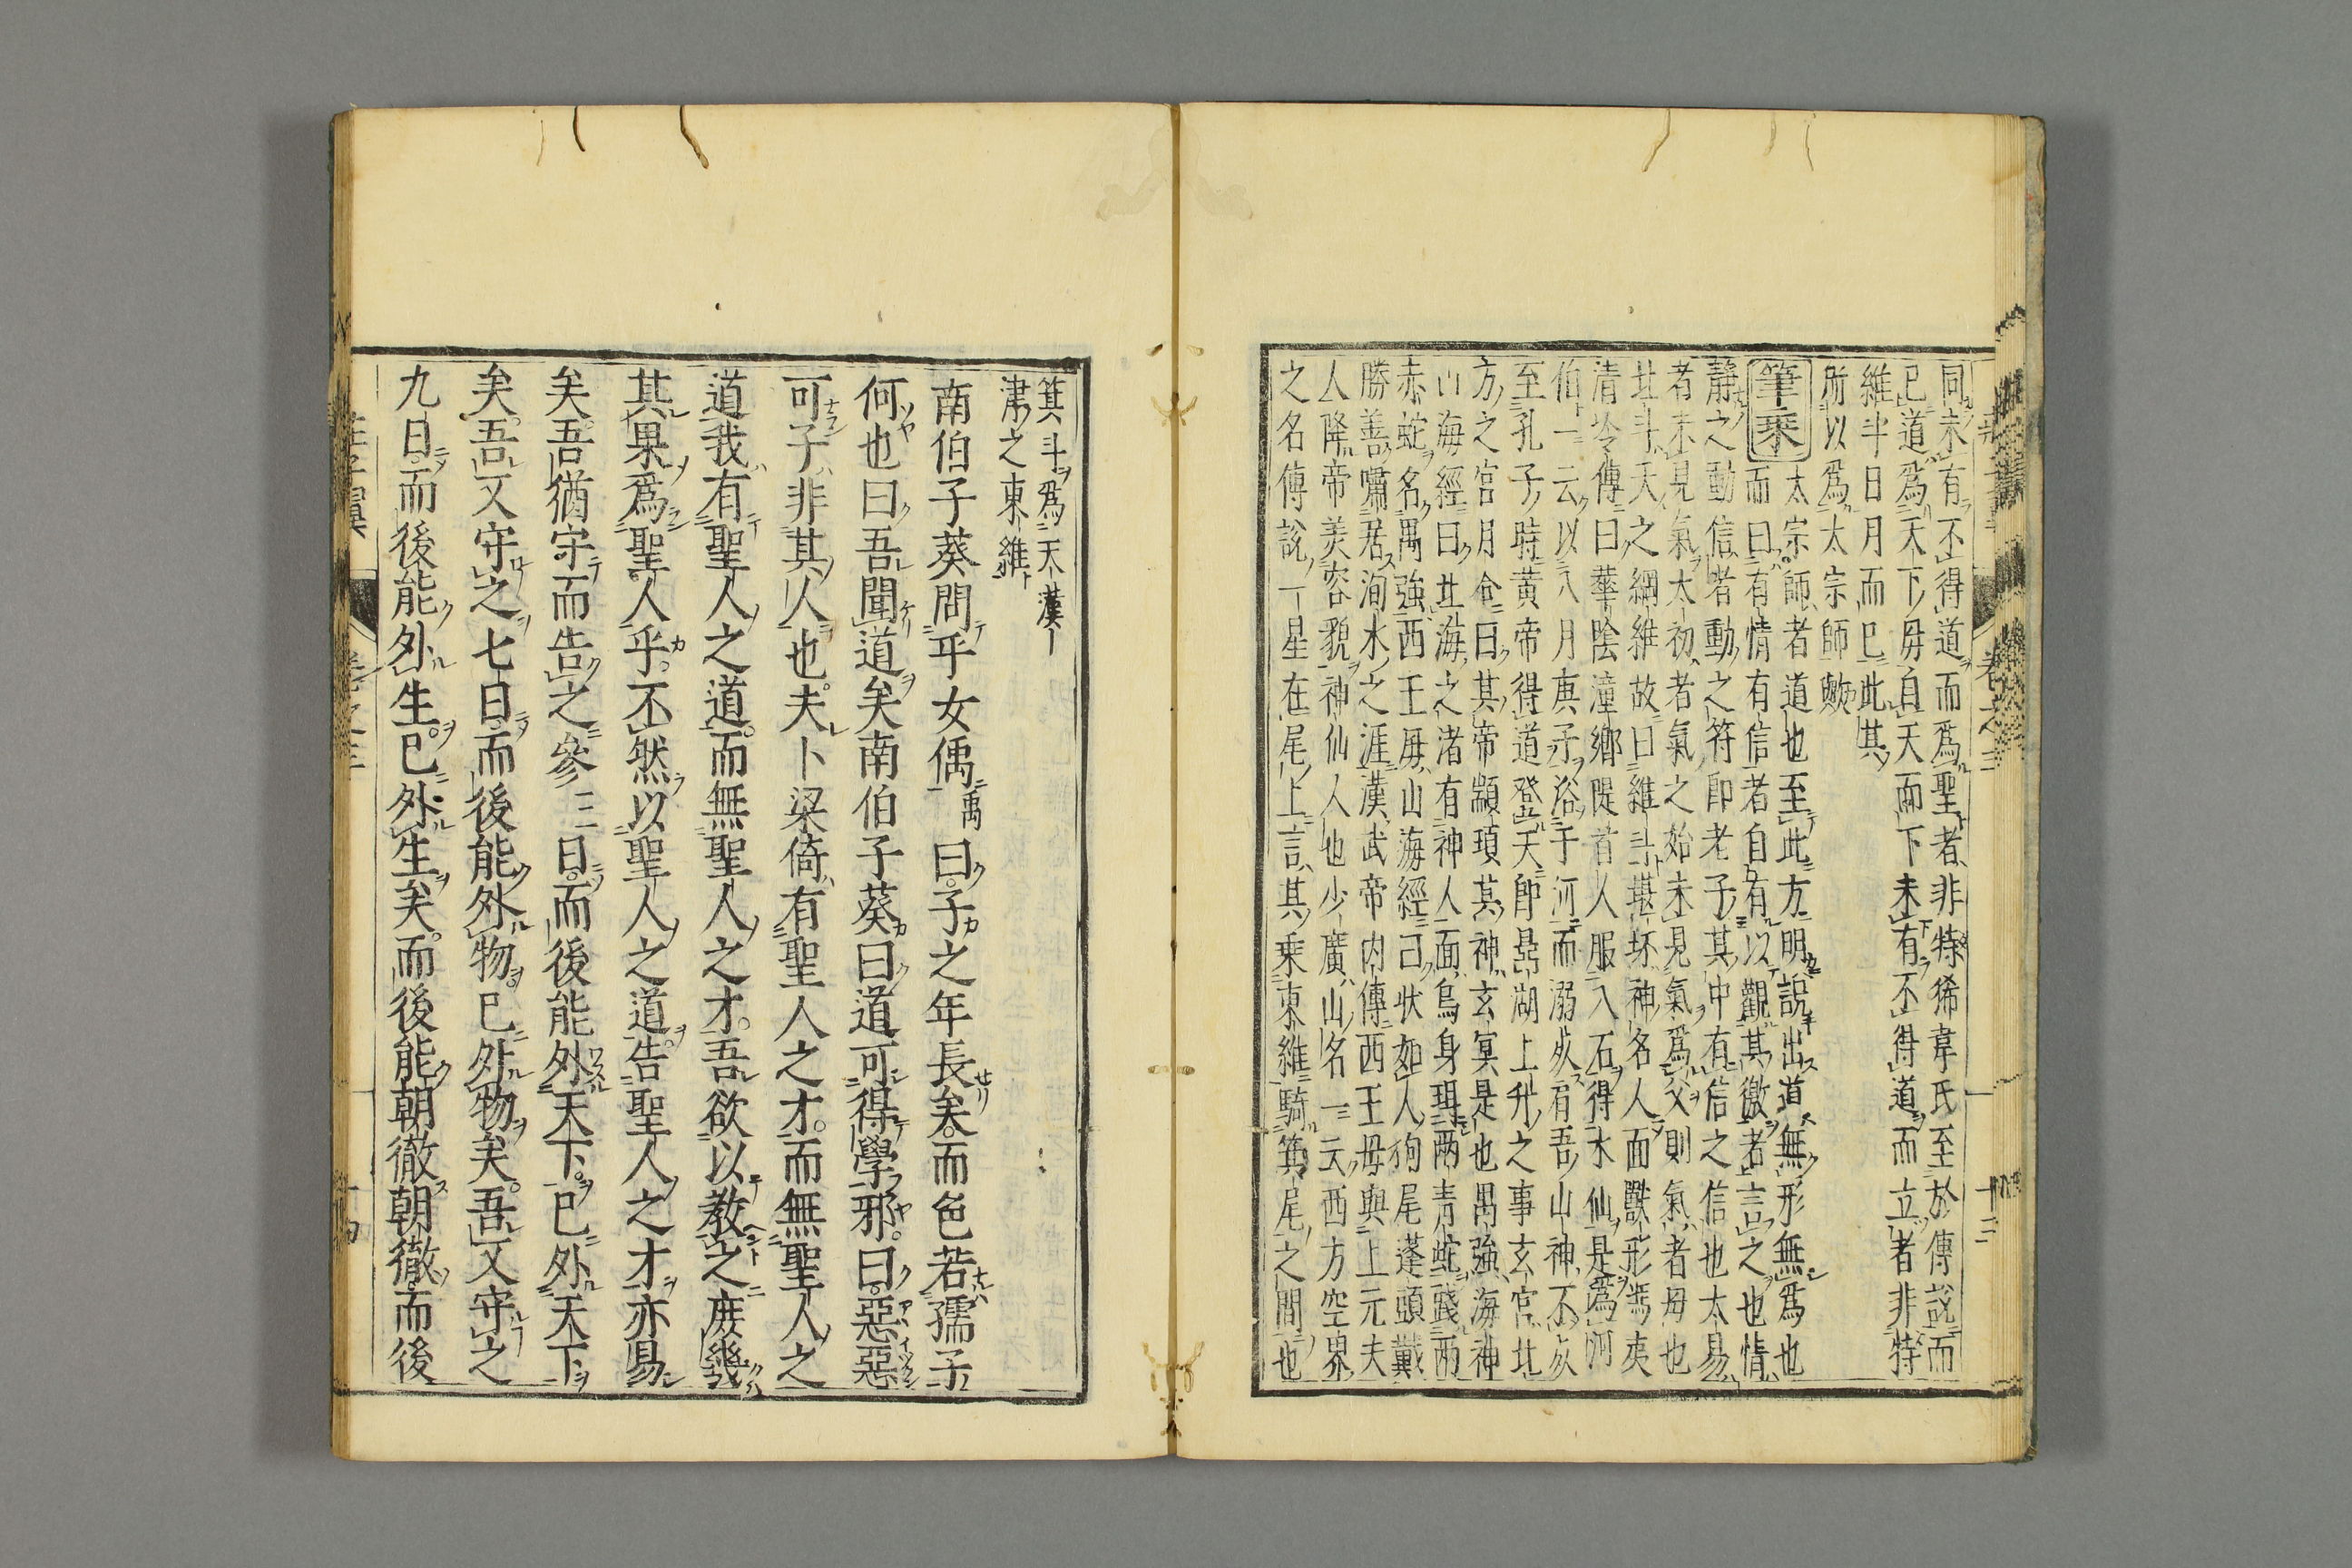 同未有不得道而爲聖者非特狶韋氏至於傳說而
已道爲天下毋自天而下未有不得道而立者非特
維斗日月而已此其
所以爲太宗師歟
筆乘
太宗師者道也至此方明說出道無形無爲也
而曰有情有信者自有以觀其徼者言之也情
靜之動信者動之符即老子其中有信之信也太易
者未見氣太初者氣之始未見氣爲父則氣者毋也
北斗天之綱維故曰維斗堪坏神名人面獸形馮夷
清泠傳曰華陰潼鄉隄首人服八石得水仙是爲河
伯一云以八月庚子浴于河而溺死肩吾山神不死
至孔子時黃帝得道登天即鼎湖上升之事玄宮北
方之宮月令曰其帝顓頊其神玄冥是也禺強海神
山海經曰北海之渚有神人面鳥身珥兩青蛇踐兩
赤蛇名禺強西王毋山海經曰狀如人狗尾蓬頭戴
勝善嘯居洵水之涯漢武帝内傳西王毋與上元夫
人降帝美容貌神仙人也少廣山名一云西方空界
之名傳說一星在尾上言其乘東維騎箕尾之間也
箕斗爲天漢
津之東維
南伯子葵問乎女偊禹曰子之年長矣而色若孺子
何也曰吾聞道矣南伯子葵曰道可得學邪曰惡惡
可子非其人也夫卜梁倚有聖人之才而無聖人之
道我有聖人之道而無聖人之才吾欲以教之庶幾
其果爲聖人乎不然以聖人之道告聖人之才亦易
矣吾猶守而告之參三日而後能外天下已外天下
矣吾又守之七日而後能外物已外物矣吾又守之
九日而後能外生已外生矣而後能朝徹朝徹而後